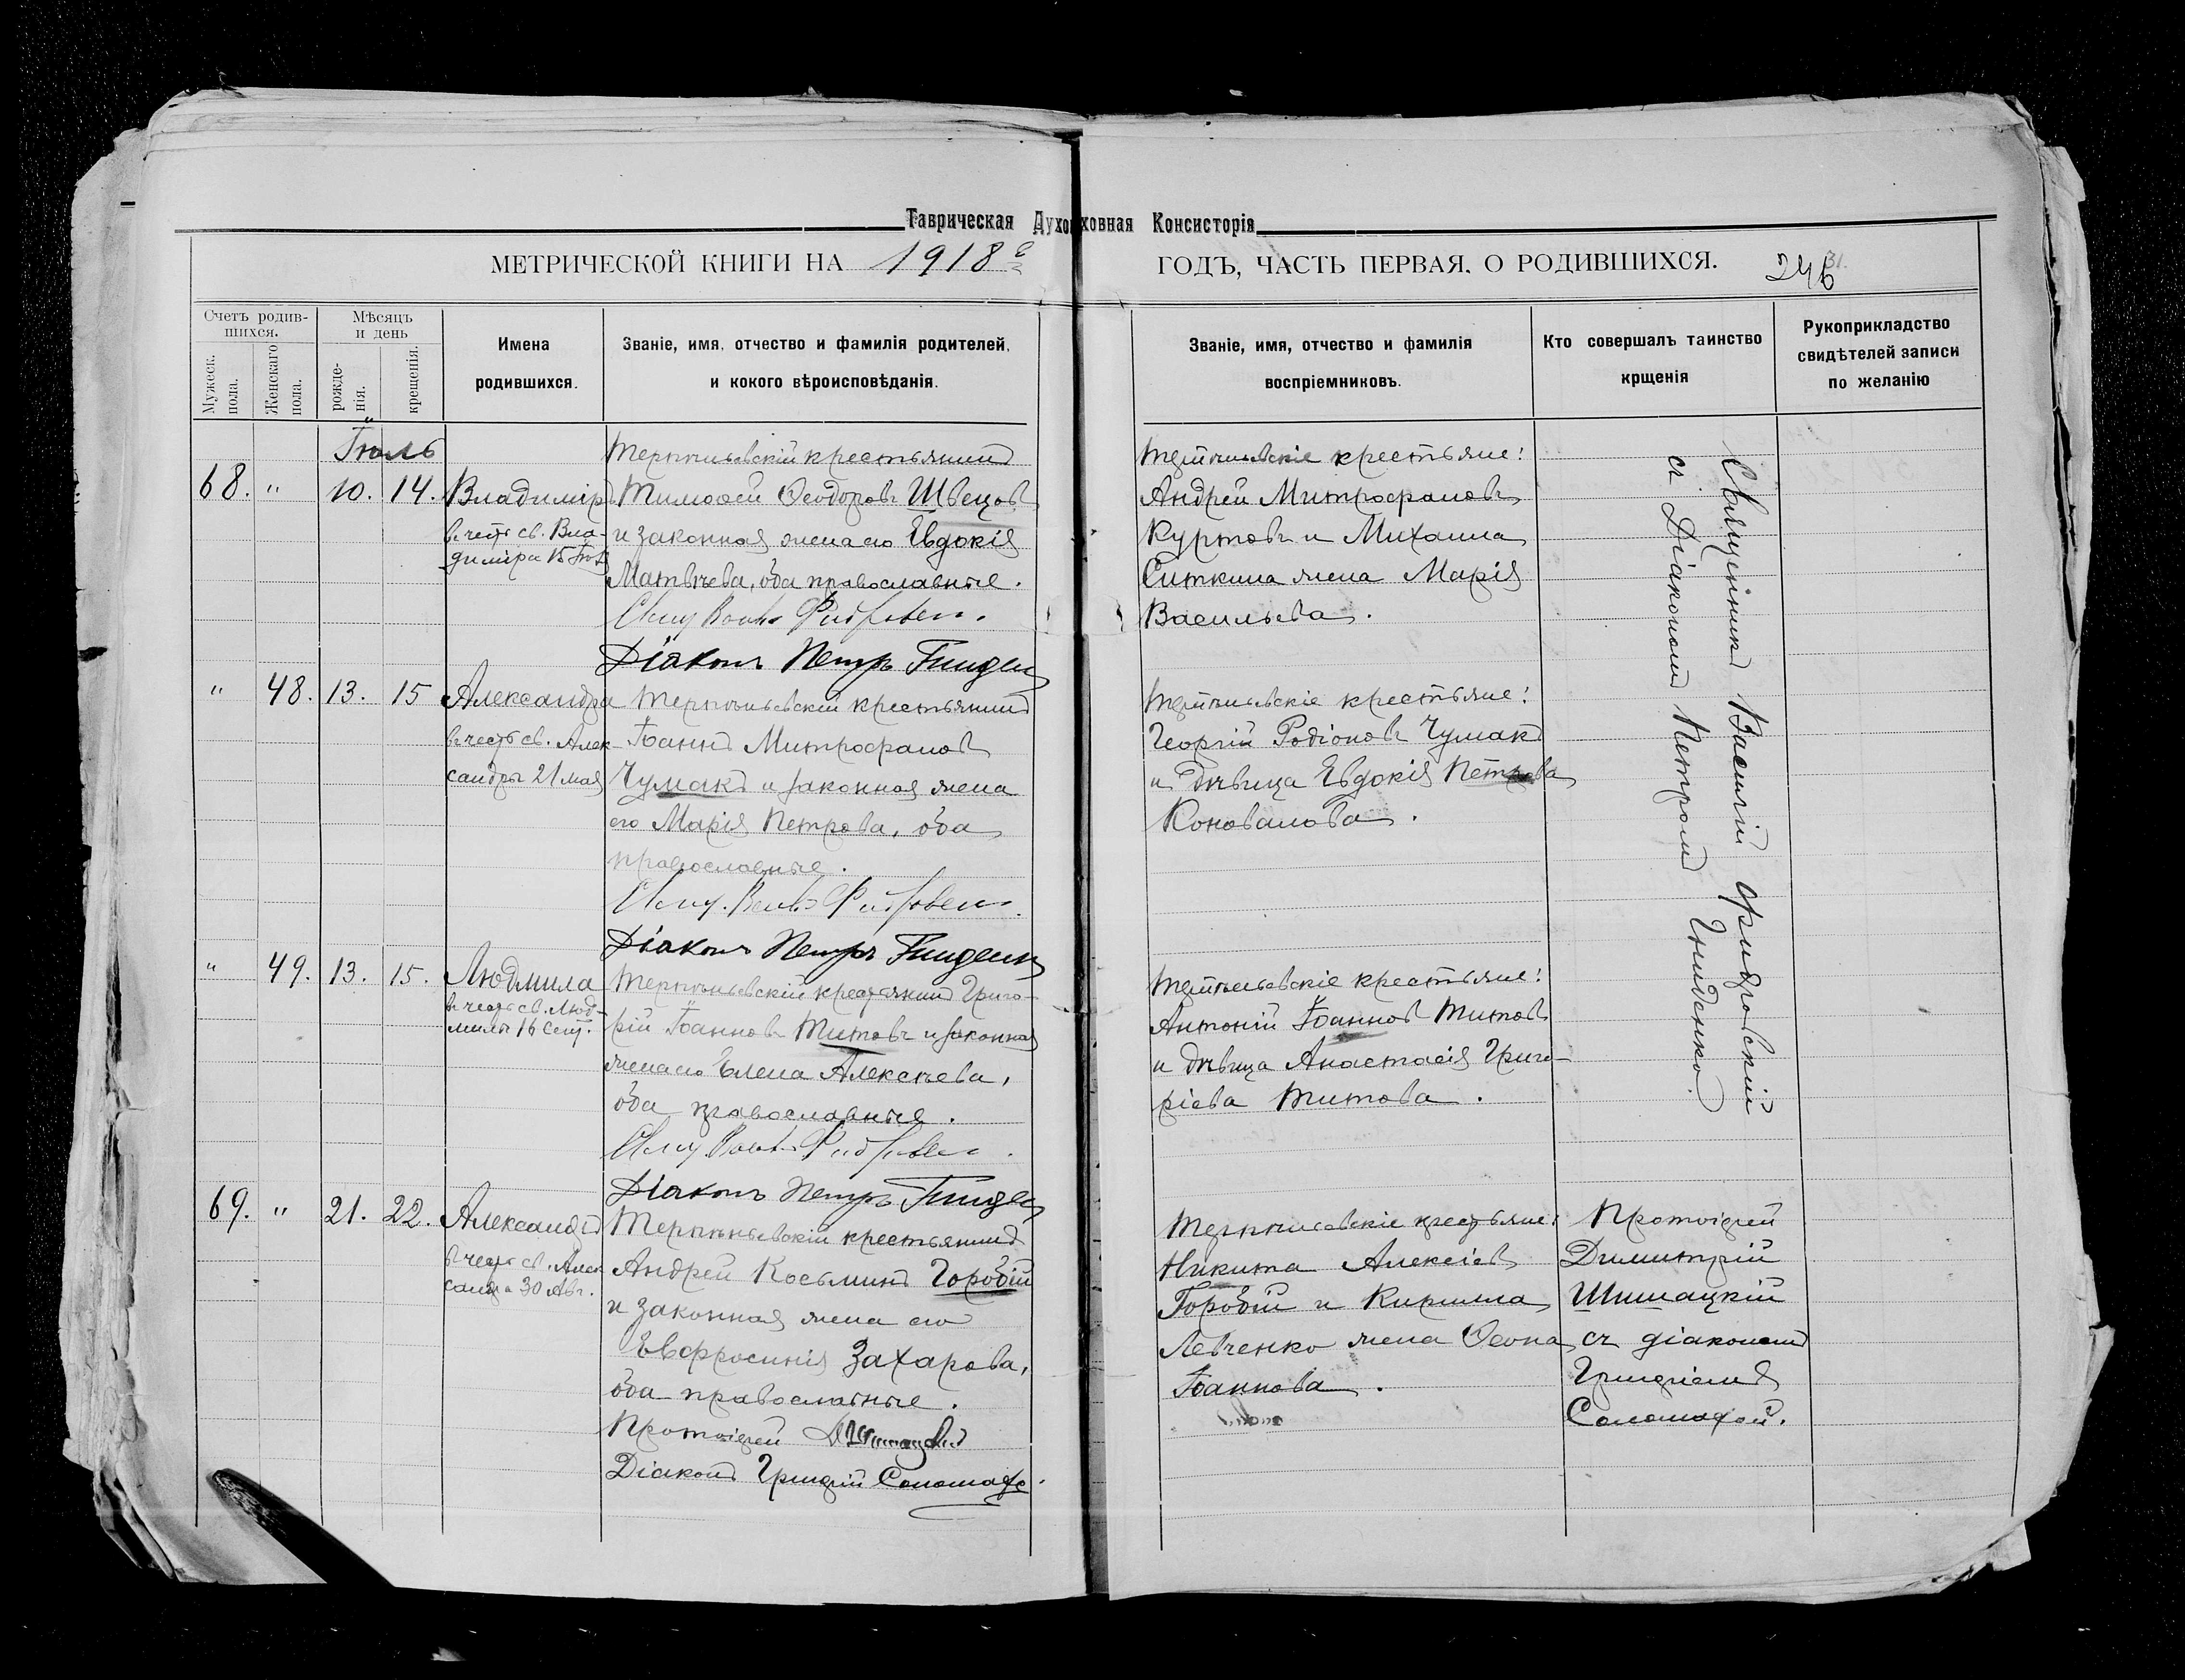 Таврическая Духовная Консисторія
МЕТРИЧЕСКОЙ КНИГИ НА 1918 ГОДЪ, ЧАСТЬ ПЕРВАЯ, О РОДИВШИХСЯ. 246
31.
Счетъ родив-
шихся.
Мужеск.
пола.
Женскаго
пола.
Мѣсяцъ
и день
рожде-
нія.
крещенія.
Имена
родившихся.
Званіе, имя, отчество и фамилія родителей,
и кокого вѣроисповѣданія.
Званіе, имя, отчество и фамилія
воспріемниковъ.
Кто совершалъ таинство
крщенія
Рукоприкладство
свидѣтелей записи
по желанію
Іюль
68. " 10. 14.
Владиміръ
въ честь св. Вла-
диміра 15 Іюл
Терпѣньевскій крестьянинъ
Тимоѳей Ѳеодоровъ Швецовъ
и законная жена его Евдокія
Матвѣева, оба православные.
Діаконъ Петръ Гниден
Терпѣньевскіе крестьяне:
Андрей Митрофановъ
Куртовъ и Михаила
Ситкина жена Марія
Васильева.
Священникъ Василій Фидровскій
съ Діакономъ Петромъ Гниденко.
" 48. 13. 15
Александра
въ честь св. Алек-
сандры 21 мая
Терпѣньевскій крестьянинъ
Іоаннъ Митрофановъ
Чумакъ и законная жена
его Марія Петрова, оба
православные.
Діаконъ Петръ Гниденк
Терпѣньевскіе крестьяне:
Георгій Родіоновъ Чумакъ
и дѣвица Евдокія Петрова
Коновалова.
" 49. 13. 15.
Людмила
въ честь св. Люд-
милы 16 Сент.
Терпѣньевскій крестьянинъ Григо-
рій Іоанновъ Титовъ и законная
жена его Елена Алексѣева,
оба православные.
Діаконъ Петръ Гниден
Терпѣньевскіе крестьяне:
Антоній Іоанновъ Титовъ
и дѣвица Анастасія Григо-
ріева Титова.
69. " 21. 22.
Александръ
въ честь св. Алек
сандра 30 Авг.
Терпѣньевскій крестьянинъ
Андрей Косьминъ Горобій
и законная жена его
Евфросинія Захарова,
оба православные.
Протоіерей Д Шишацкій
Діаконъ Григорій Соломаха.
Терпѣньевскіе крестьяне:
Никита Алексіевъ
Горобій и Кирилла
Левченко жена Ѳеона
Іоаннова.
Протоіерей
Димитрій
Шишацкій
съ діакономъ
Григоріемъ
Соломахой.